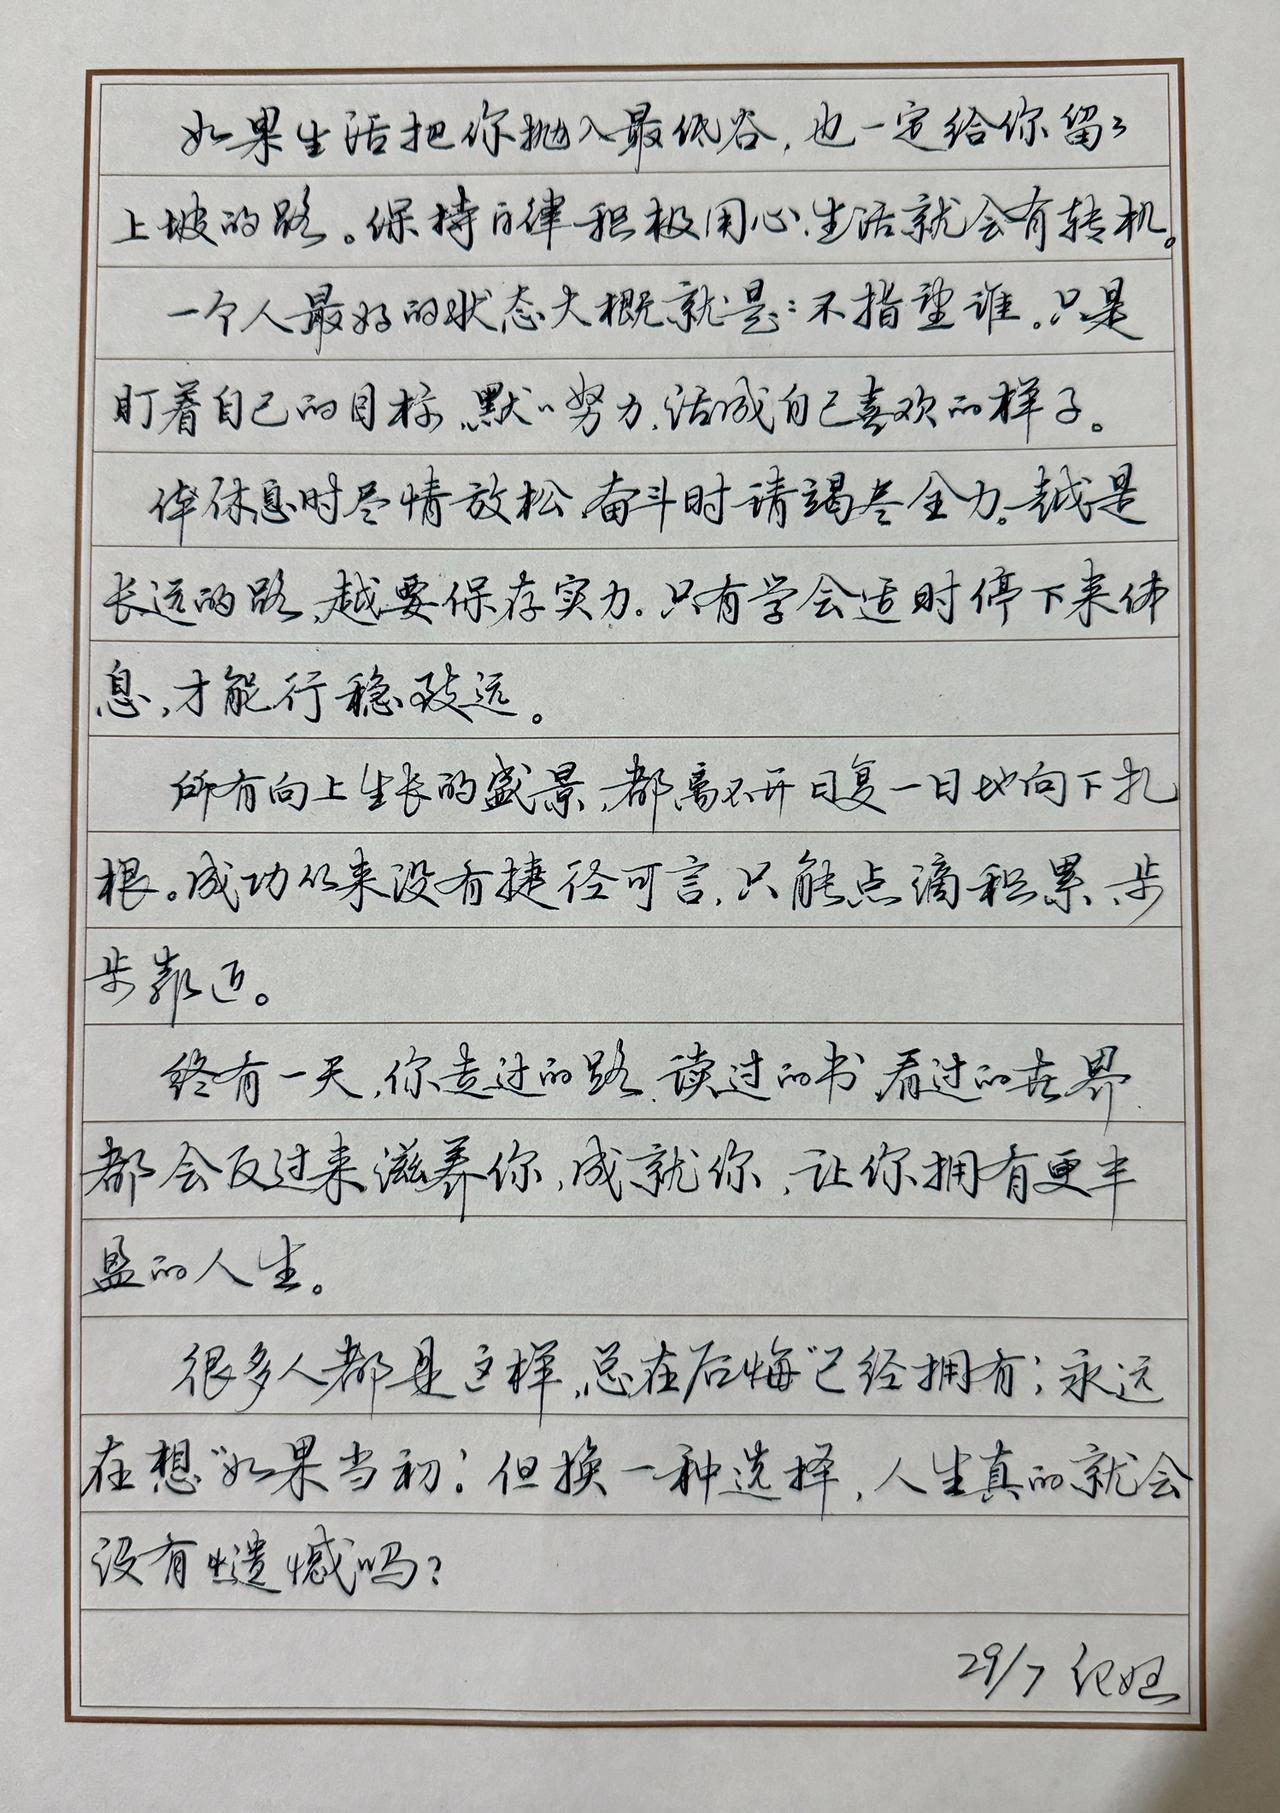 如果生活把你抛入最低谷，也一定给你留了
上坡的路。保持自律积极用心，生活就会有转机。
一个人最好的状态大概就是：不指望谁。只是
盯着自己的目标，默默努力，活成自己喜欢的样子。
休息时尽情放松，奋斗时请竭尽全力。越是
长远的路，越要保存实力。只有学会适时停下来休
息，才能行稳致远。
所有向上生长的盛景，都离不开日复一日地向下扎
根。成功从来没有捷径可言，只能点滴积累、步
步靠近。
终有一天，你走过的路、读过的书、看过的世界，
都会反过来滋养你，成就你，让你拥有更丰
盈的人生。
很多人都是这样，总在后悔"已经拥有；永远
在想"如果当初"。但换一种选择，人生真的就会
没有遗憾吗？
29/7